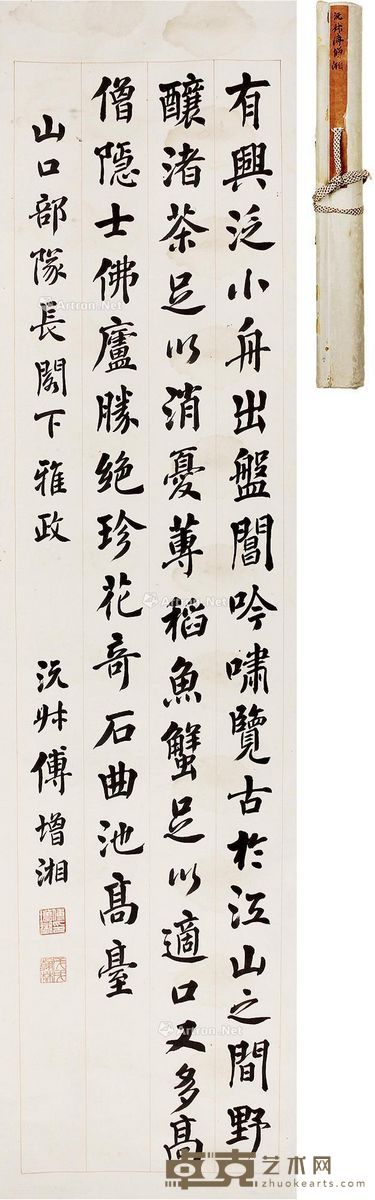 有興泛小舟出盤閶吟嘯覽古於江山之間野
釀渚茶足以消憂蓴稻魚蟹足以適口又多高
僧隱士佛廬勝絕珍花奇石曲池高臺
山口部隊長閣下雅政 沅叔傅增湘
沅叔傅增湘
Artron.Net
卓克艺术网
zhuokearts.com